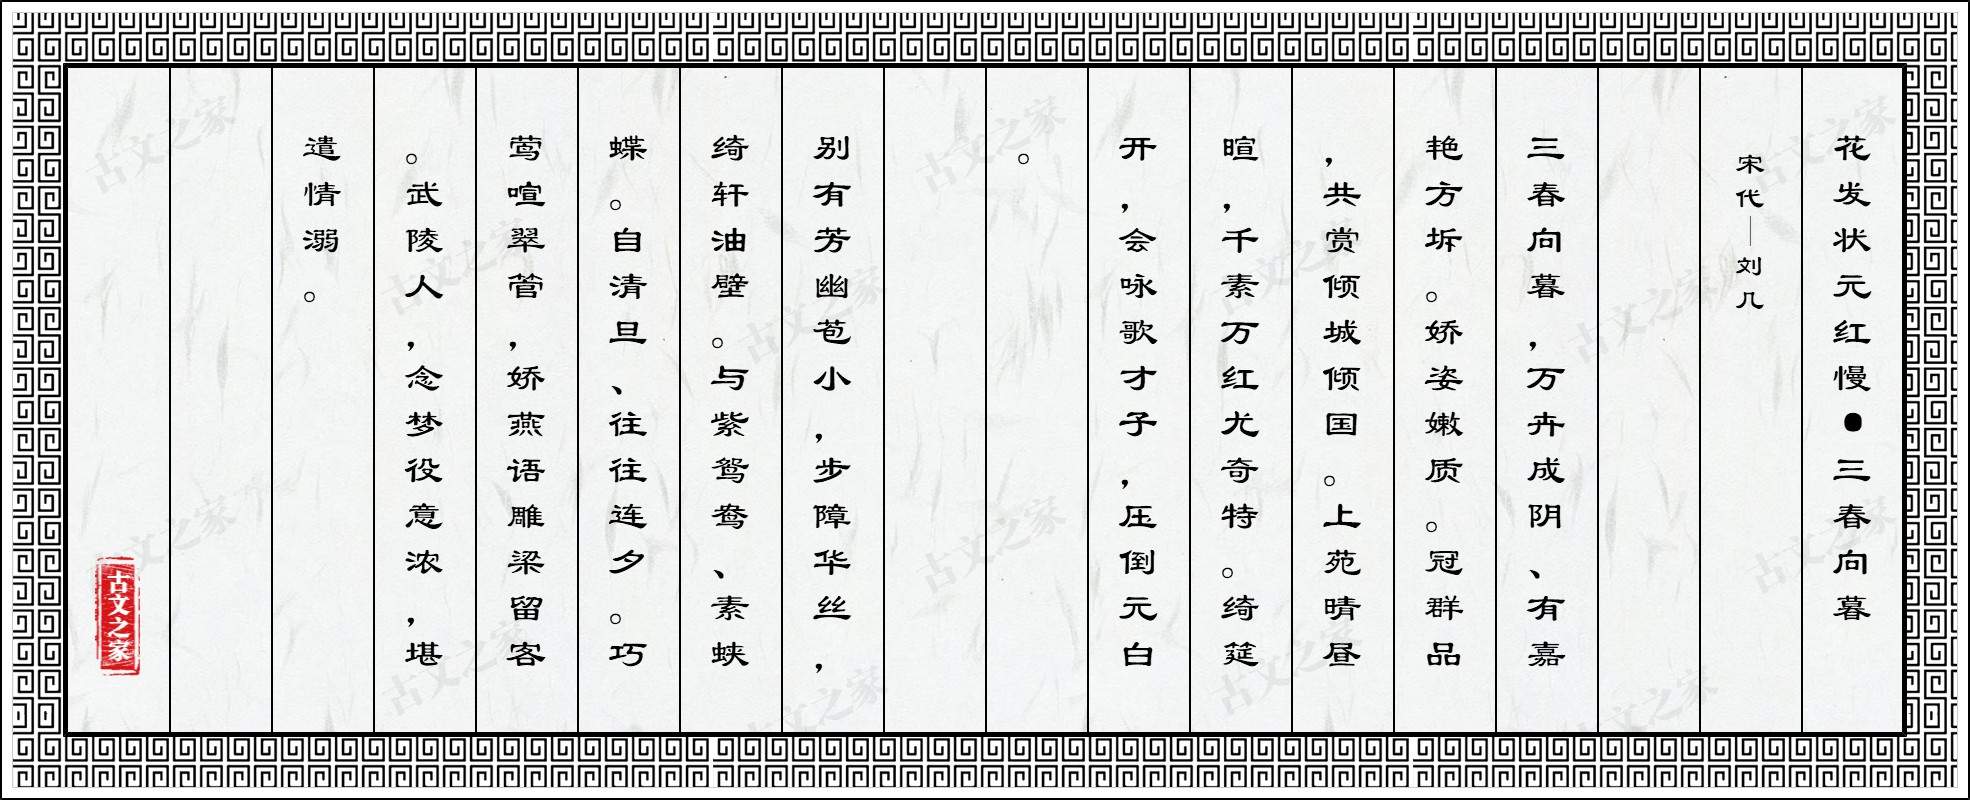 花发状元红慢·三春向暮
宋代—刘几
三春向暮，万卉成阴、有嘉
艳方坼。娇姿嫩质。冠群品
，共赏倾城倾国。上苑晴昼
暄，千素万红尤奇特。绮筵
开，会咏歌才子，压倒元白
。
别有芳幽苞小，步障华丝，
绮轩油壁。与紫鸳鸯、素蛱
蝶。自清旦、往往连夕。巧
莺喧翠管，娇燕语雕梁留客
。武陵人，念梦役意浓，堪
遣情溺。
古文之家